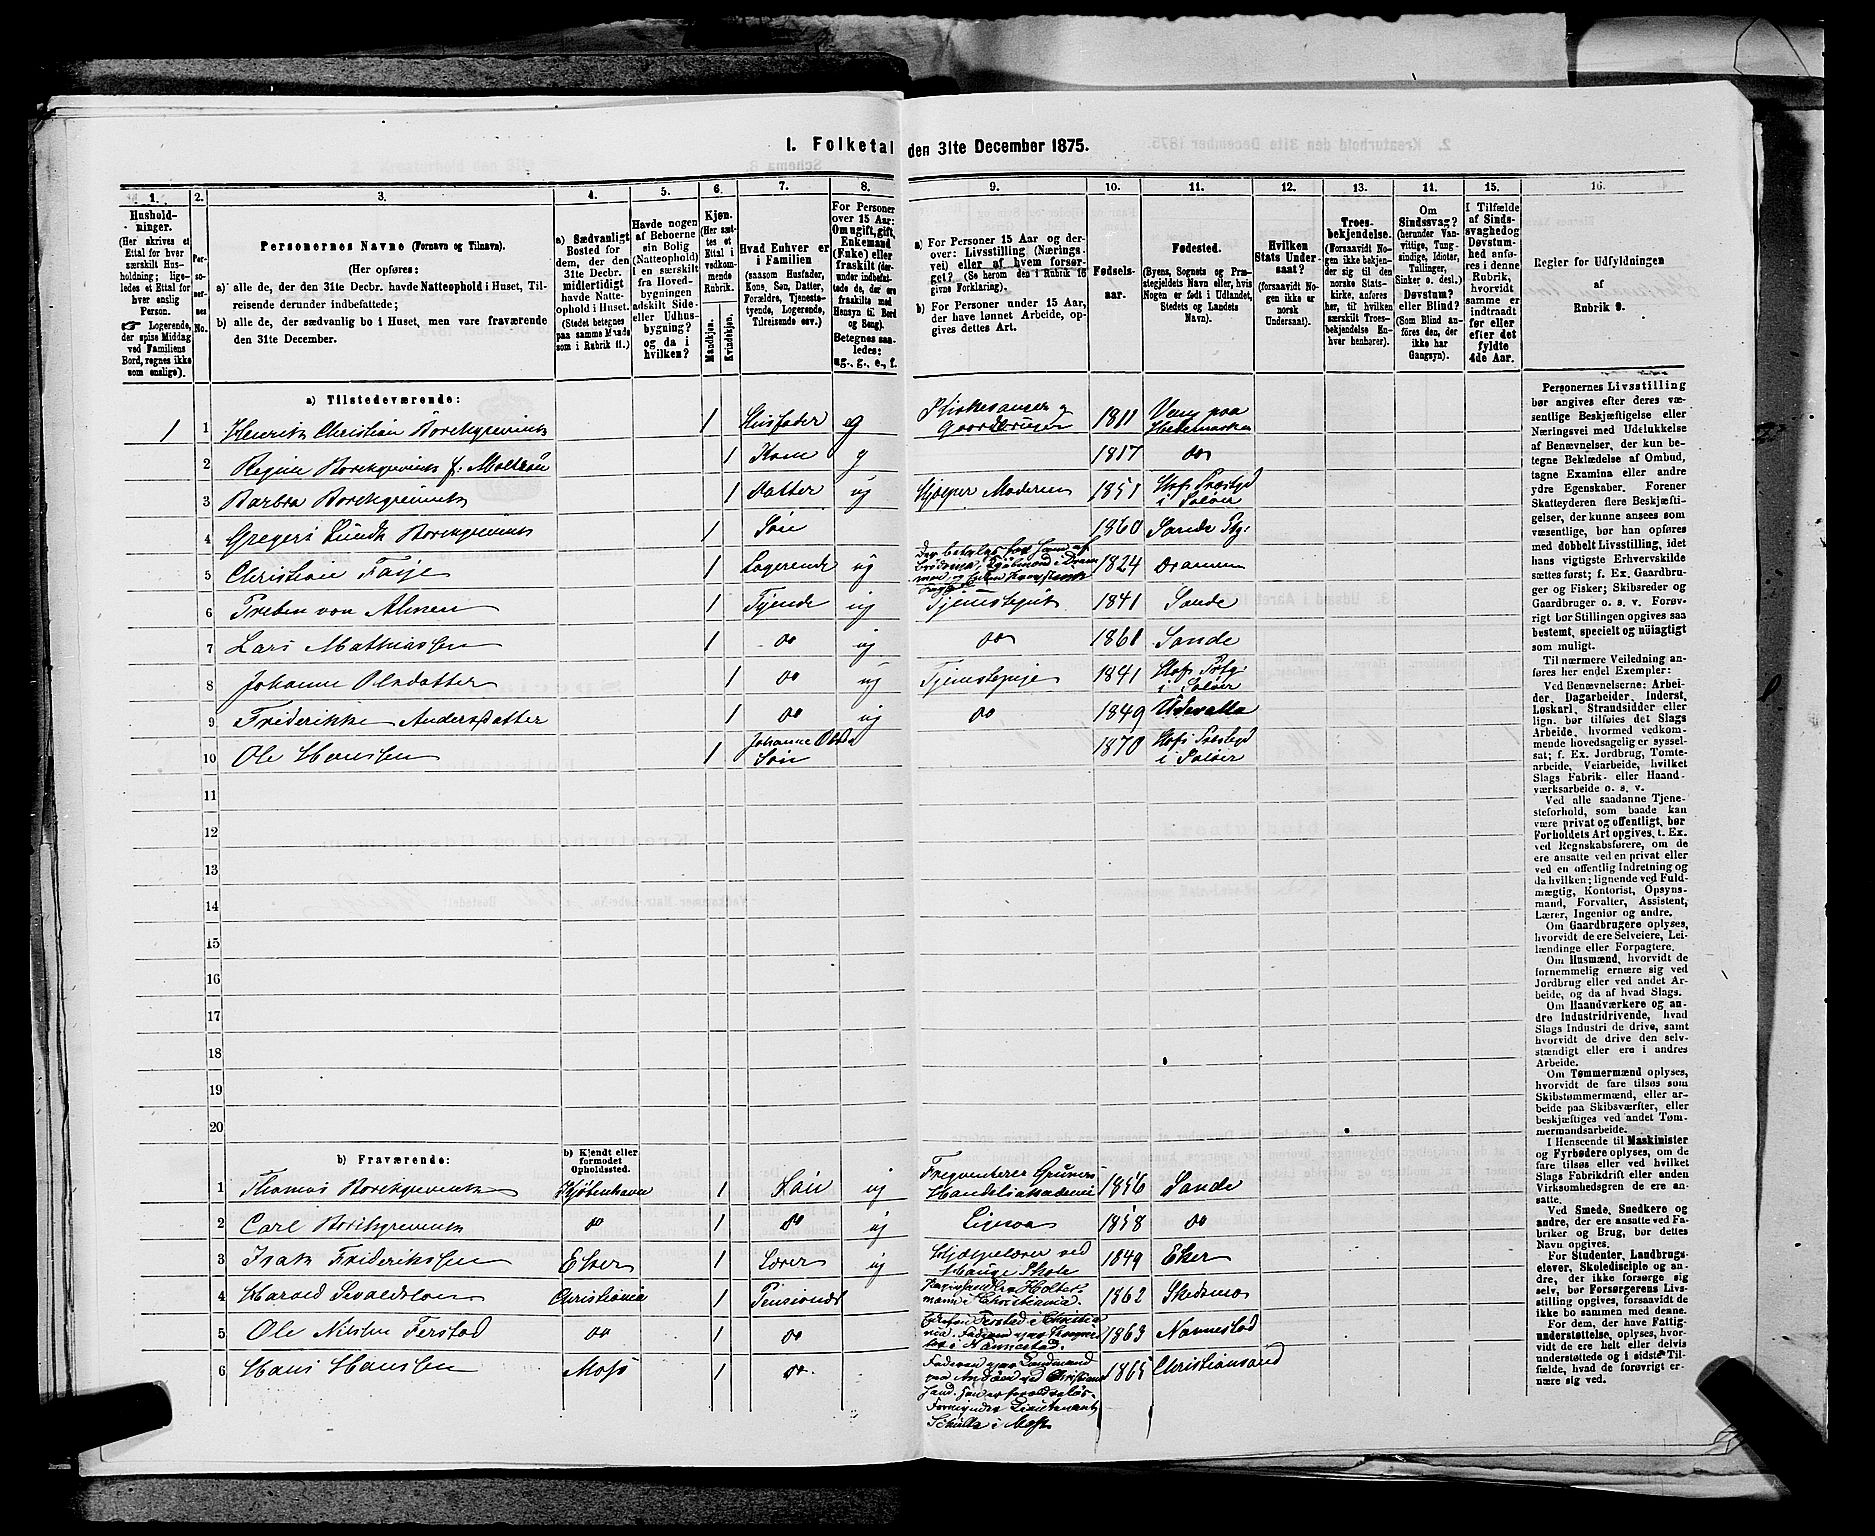 I. Folketal den 31te December 1875.
1.
2.
3.
4.
5.
6.
7.
8.
9.
10.
11.
12.
13.
14.
15.
16.
Husholdninger.
(Her skrives et
Ettal for hver
særskilt Husholdning;
ligeledes et Ettal for
hver enslig
Person.
Logerende,
der spise Middag
ved Familiens
Bord, regnes ikke
som enslige).
Personernes No.
Personernes Navne (Fornavn og Tilnavn).
(Her opføres:
a) alle de, der den 31te Decbr. havde Natteophold i Huset, Tilreisende derunder indbefattede;
b) alle de, der sædvanlig bo i Huset, men vare fraværende
den 31te December.
a) Sædvanligt
Bosted for
dem, der den
31te Decbr.
midlertidigt
havde Natteophold i Huset.
(Stedet betegnes
paa samme Maade
som i Rubrik 11.)
Havde nogen
af Beboerne
sin Bolig
(Natteophold)
i en særskilt
fra Hovedbygningen
adskilt Side-
eller Udhusbygning?
og da i
hvilken?
Kjøn.
(Her sættes et
Ettal i
vedkommende
Rubrik.
Mandkjøn.
Kvindekjøn.
Hvad Enhver er
i Familien
(saasom Husfader,
Kone, Søn, Datter,
Forældre, Tjenestetyende, Logerende,
Tilreisende osv.)
For Personer
over 15 Aar:
Om ugift, gift,
Enkemand
(Enke) eller
fraskilt (derunder indbefattede de, der ere
fraskilte med
Hensyn til Bord
og Seng).
Betegnes saaledes:
ug., g., e., f.
a) For Personer 15 Aar og derover: Livsstilling (Næringsvei) eller af hvem forsørget? (Se herom den i Rubrik 16
givne Forklaring).
b) For Personer under 15 Aar,
der have lønnet Arbeide, opgives dettes Art.
Fødselsaar.
Fødested.
(Byens, Sognets og Præstegjeldets Navn, eller, hvis
Nogen er født i Udlandet,
Stedets og Landets
Navn).
Hvilken
Stats Undersaat?
(forsaavidt Nogen ikke er
norsk
Undersaat).
Troesbekjendelse.
(Forsaavidt Nogen ikke bekjender sig til den
norske Statskirke, anføres
her, til hvilken
særskilt Troesbekjendelse Enhver henhører).
Om
Sindssvag?
(herunder Vanvittige, Tungsindige, Idioter,
Tullinger,
Sinker o. desl.)
Døvstum?
eller Blind?
(Som Blind anføres den, der
ikke har
Gangsyn).
I Tilfælde
af Sindssvaghed og
Døvstumhed anføres
i denne
Rubrik,
hvorvidt
samme er
indtraadt
før eller
efter det
fyldte
4de Aar.
Regler for Udfyldningen
af
Rubrik 9.
a) Tilstedeværende:
1 1 Henrik Christian Borchgrevink 1 Husfader g Kirkesanger og Gaardbruger 1811 Vang paa Hedemarken
2 Regine Borchgrevink f. 1 Kone g 1817 do
3 Barbra Borchgrevink 1 Datter ug Hjelper Moderen 1851 Hofs Præstgd i Soløer
4 Gregers Lundh Borchgrevink 1 Søn 1860 Sande Pg:
5 Christian Faye 1 Logerende ug Der betales for ham af 1824 Drammen
6 Preben von Ahnen 1 Tjende ug Tjenstegut 1841 Sande
7 Lars Mathiassen 1 do ug do 1861 Sande
8 Johanne Olsdatter 1 do ug Tjenstepige 1841 Hofs Pstg: i Soløer
9 Friderikke Andersdatter 1 do ug do 1849 Udevalla
10 Ole Hanssen 1 Johanne Olsda Søn 1870 Hofs Præstgd i Soløer
11
12
13
14
15
16
17
18
19
20
b) Fraværende:
b) Kjendt eller
formodet
Opholdssted.
1 Thomas Borchgrevink Kjøbenhavn 1 Søn ug Freqventerer Gruners Handelsakademi 1856 Sande
2 Carl Borchgrevink do 1 do ug Ligesaa 1858 do
3 Isak Frideriksen Eker 1 Lærer ug Hjælpelærer ved Hauge Skole 1849 Eker
4 Harald Christiania 1 Pensionær i Christiania. 1862 Skedsmo
5 Ole Nilsen Ferstad do 1 do 1863 Nannestad
6 Hans Hanssen Moss 1 do Faderen var Landmand 1865 Christianssand
Formynder Lieutenant
Schultz i Moss
Personernes Livsstilling
bør angives efter deres væsentlige Beskjæftigelse eller
Næringsvei med Udelukkelse
af Benævnelser, der kun betegne Beklædelse af Ombud,
tagne Examina eller andre
ydre Egenskaber. Forener
Skatteyderen flere Beskjæftigelser, der kunne ansees som
væsentlige, bør han opføres
med dobbelt Livsstilling, idet
hans vigtigste Erhvervskilde
sættes først; f. Ex. Gaardbruger og Fisker; Skibsreder og
Gaardbruger o. s. v. Forøvrigt bør Stillingen opgives saa
bestemt, specielt og nøiagtigt
som muligt.
Til nærmere Veiledning anføres her endel Exempler:
Ved Benævnelserne: Arbeider, Dagarbeider, Inderst,
Løskarl, Strandsidder eller
lign. bør tilføies det Slags
Arbeide, hvormed vedkommende hovedsagelig er sysselsat; f. Ex. Jordbrug, Tomtearbeide, Veiarbeide, hvilket
Slags Fabrik- eller Haandværksarbeide o. s. v.
Ved alle saadanne Tjenesteforhold, som baade kan
være privat og offentligt, bør
Forholdets Art opgives, t. Ex.
ved Regnskabsførere, om de
ere ansatte ved en privat eller
ved en offentlig Indretning og
da hvilken; lignende ved Fuldmægtig, Kontorist, Opsynsmand, Forvalter, Assistent,
Lærer, Ingeniør og andre.
Om Gaardbrugere oplyses,
hvorvidt de ere Selveiere, Leilændinge eller Forpagtere.
Om Husmænd, hvorvidt de
fornemmelig ernære sig ved
Jordbrug eller ved andet Arbeide, og da af hvad Slags.
Om Haandværkere og andre Industridrivende, hvad
Slags Industri de drive, samt
hvorvidt de drive den selvstændigt eller ere i andres
Arbeide.
Om Tømmermænd oplyses,
hvorvidt de fare tilsøs som
Skibstømmermænd, eller arbeide paa Skibsværfter, eller
beskjæftiges ved andet Tømmermandsarbeide.
I Henseende til Maskinister
og Fyrbødere oplyses, om de
fare tilsøs eller ved hvilket
Slags Fabrikdrift eller anden
Virksomhedsgren de ere ansatte.
Ved Smede, Snedkere og
andre, der ere ansatte ved Fabriker og Brug, bør dettes
Navn opgives.
For Studenter, Landbrugselever, Skoledisciple og andre, der ikke forsørge sig
selv, bør Forsørgerens Livsstilling opgives, forsaavidt de
ikke bo sammen med denne.
For dem, der have Fattigunderstøttelse, oplyses, hvorvidt de ere helt eller delvis
understøttede og i sidste Tilfælde, hvad de forøvrigt ernære sig ved.